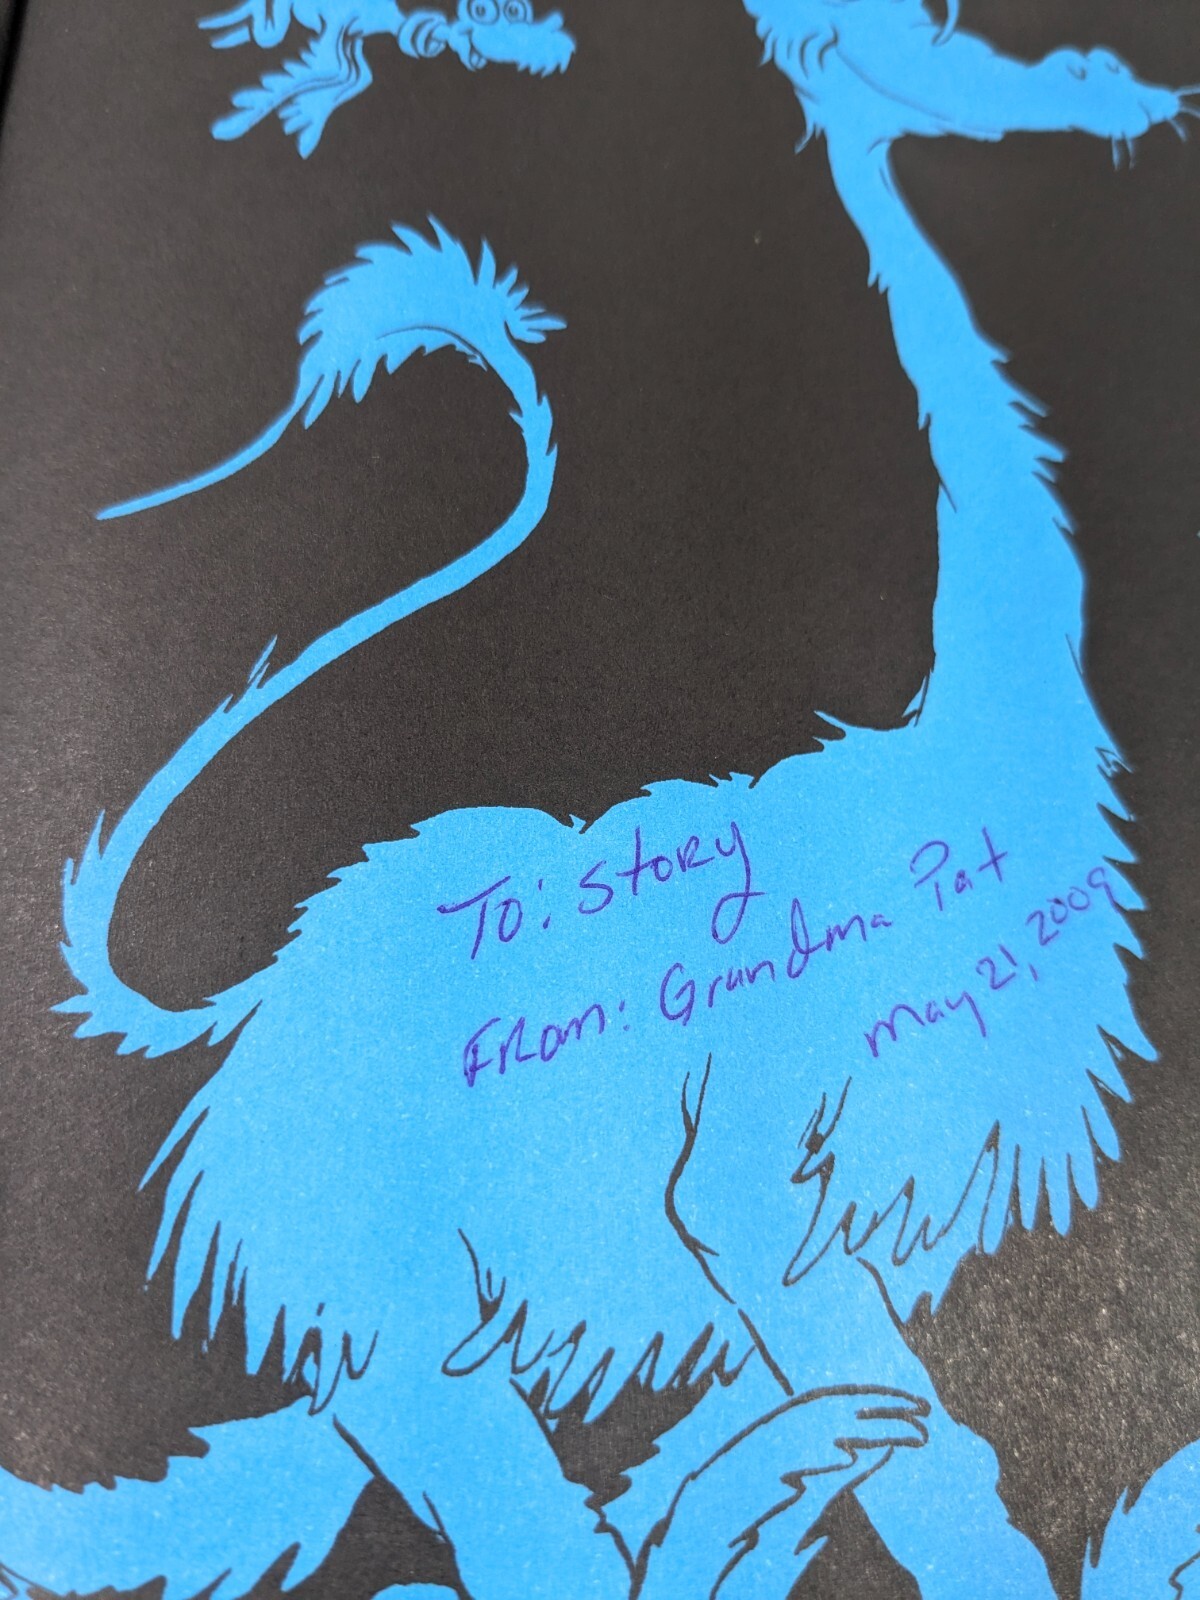 To: Story
From: Grandma Pat
May 21, 2009